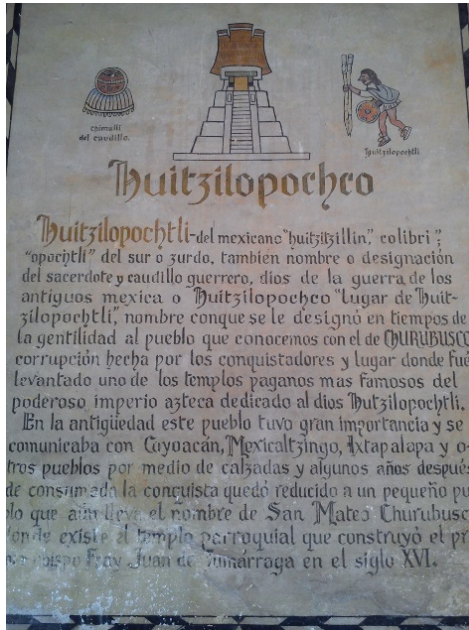 chimalli
del caudillo.
Huitzilopochtli
Huitzilopochco
Huitzilopochtli-del mexicano "huitzitzillin", colibri";
"opochtli" del sur o zurdo, también nombre o designación
del sacerdote y caudillo guerrero, dios de la guerra, de los
antiguos mexica o Huitzilopochco "lugar de Huit-
zilopochtli", nombre conque se le designó en tiempos de
la gentilidad al pueblo que conocemos con el de CHURUBUSCO
corrupción hecha por los conquistadores y lugar donde fué
levantado uno de los templos paganos mas famosos del
poderoso imperio azteca dedicado al dios Hutzilopochtli.
En la antigüedad este pueblo tuvo gran importancia y se
comunicaba con Coyoacán, Mexicaltzingo, Ixtapalapa y o-
tros pueblos por medio de calzadas y algunos años después
de consumada la conquista quedó reducido a un pequeño pu
blo que aún lleva el nombre de San Mateo Churubusc
donde existe el templo parroquial que construyó el pr
obispo Fray Juan de Zumárraga en el siglo XVI.